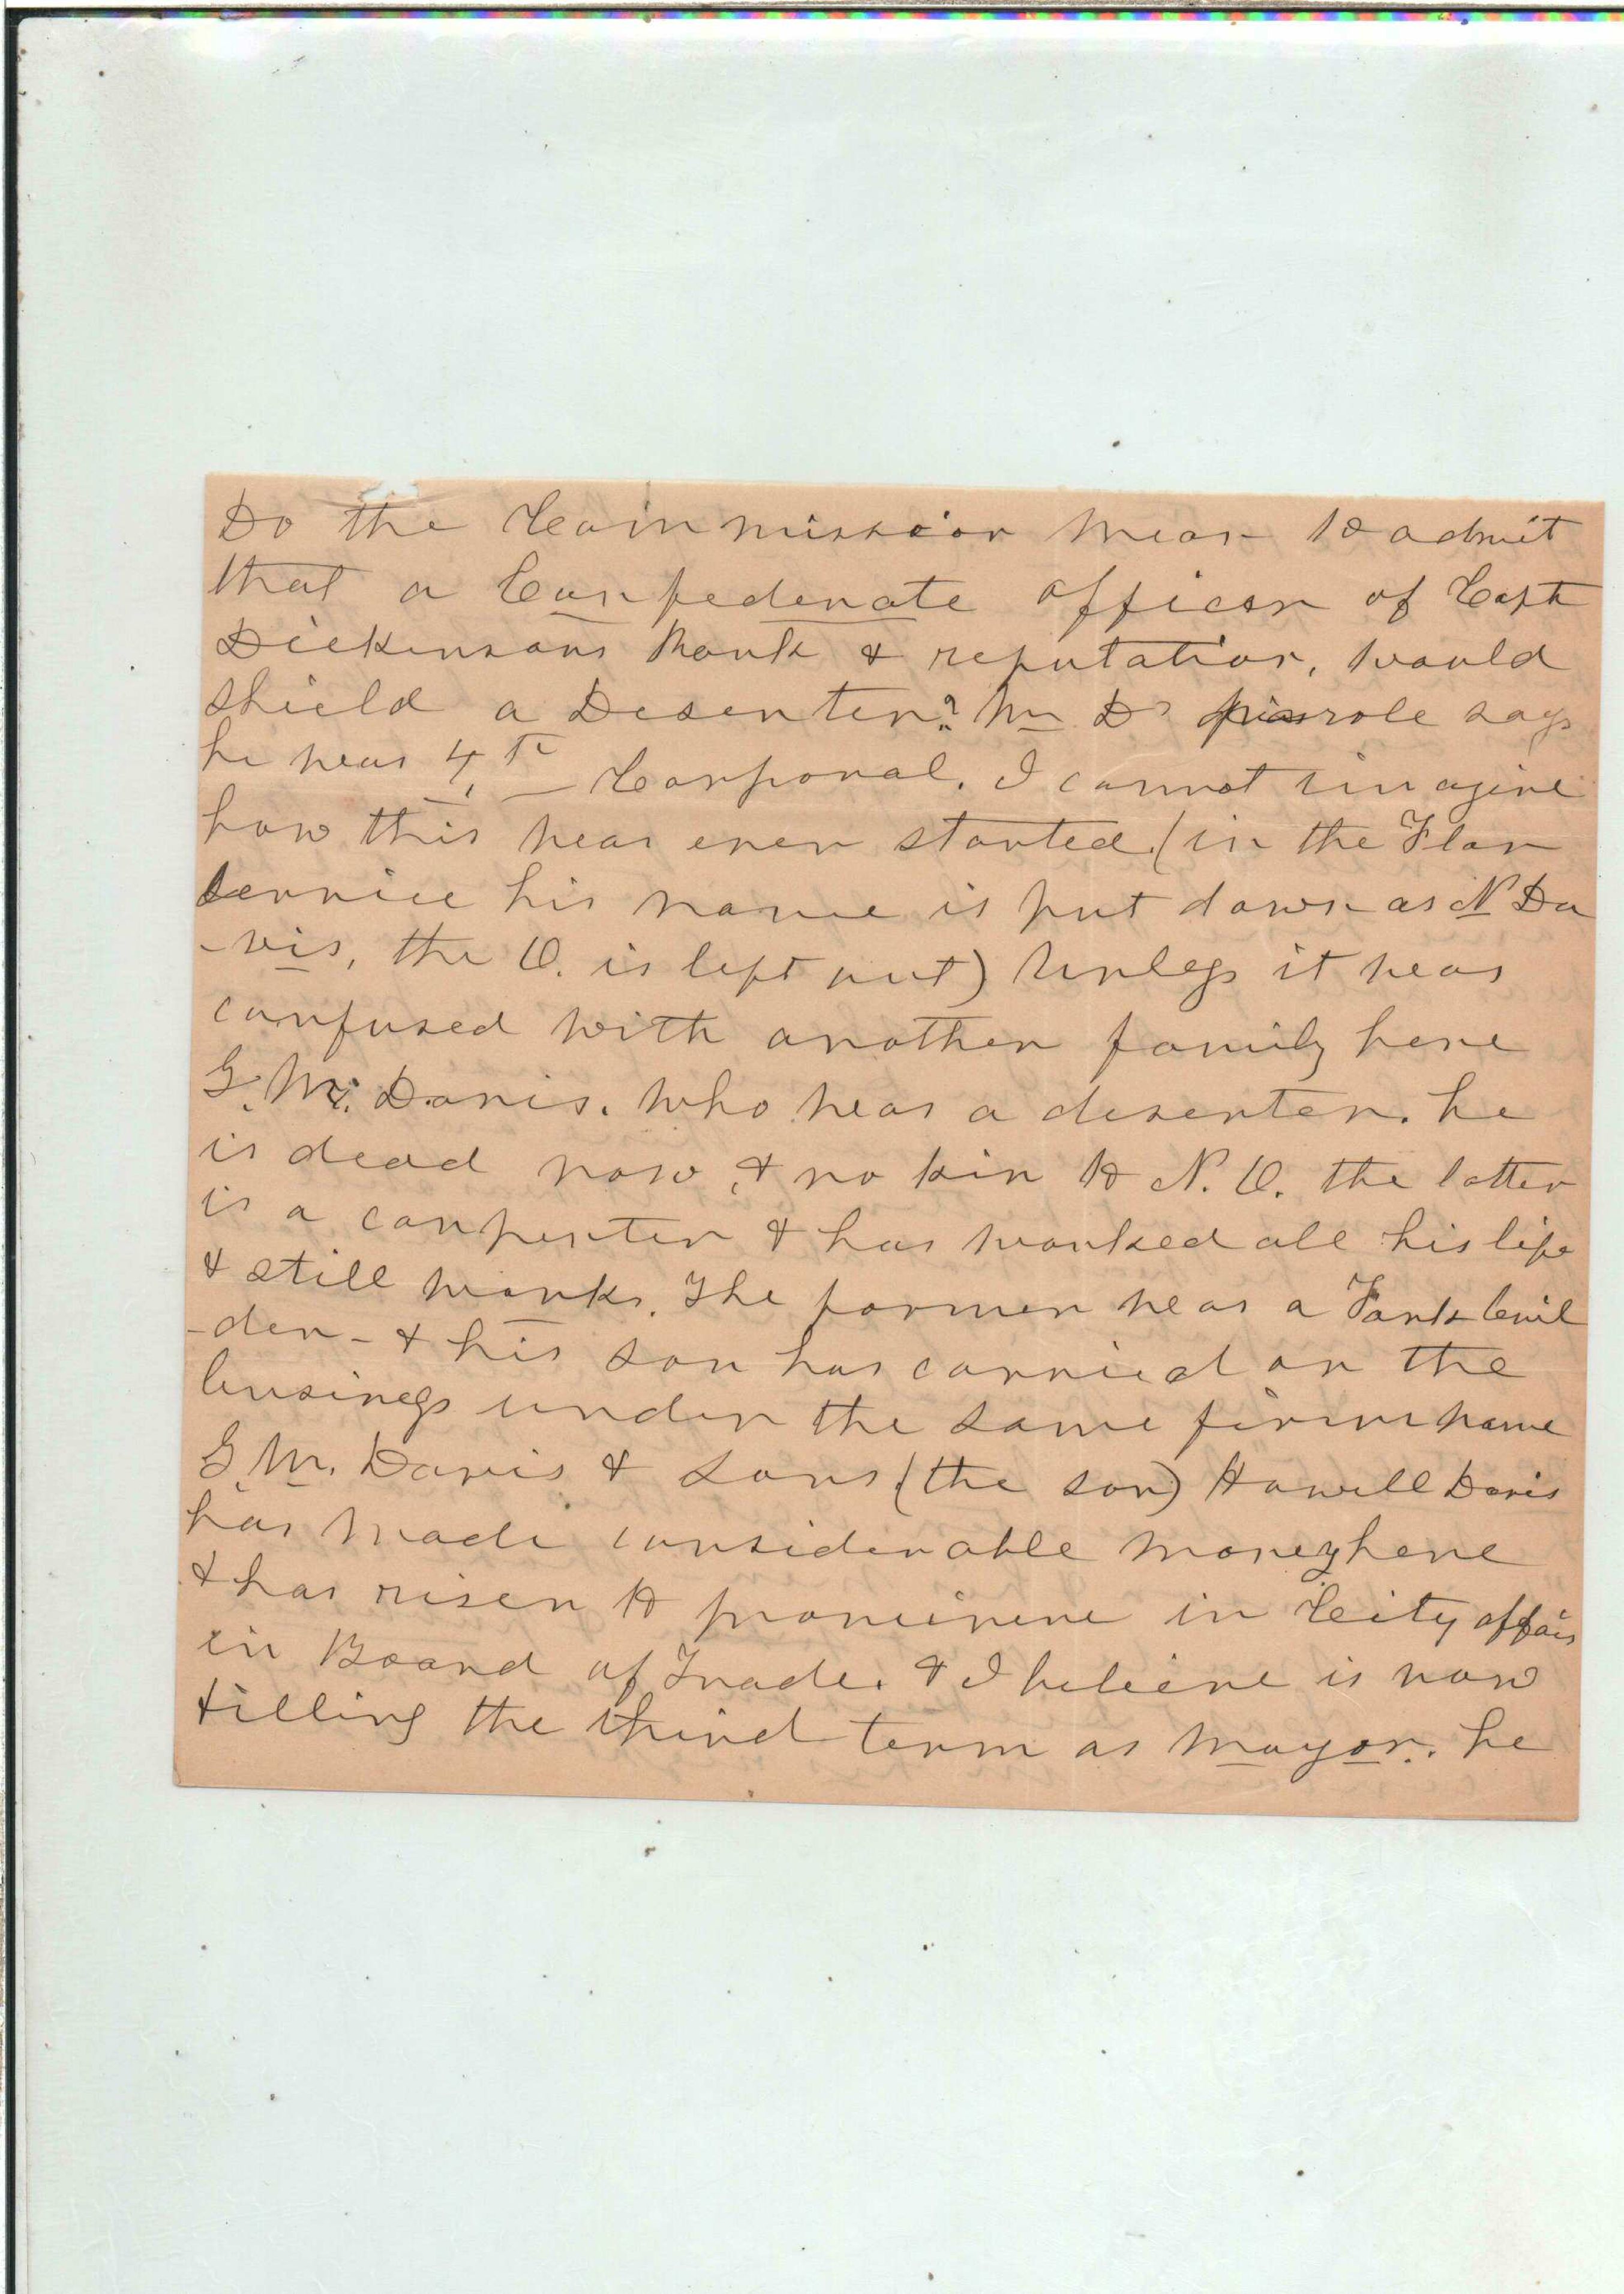 Do the Commission mean to admit
that a Confederate officer of Capt
Dickinsons Rank & reputation, would
shield a Deserter? Mr Ds parole says
he was 4th Corporal. I cannot imagine
how this was ever started (in the Flor
service his name is put down as N Da
-vis, the O. is left out) Unless it was
confused with another family here
G. M. Davis. who was a deserter. he
is dead now, & no kin to N. O. the latter
is a carpenter & has worked all his life
& still works. The former was a Tank buil
-der - & his son has carried on the
business under the same firm name
G. M. Davis & Sons (the son) Howell Davis
has made considerable money here
& has risen to prominene in City affais
in Board of Trade. & I believe is now
filling the third term as mayor. he